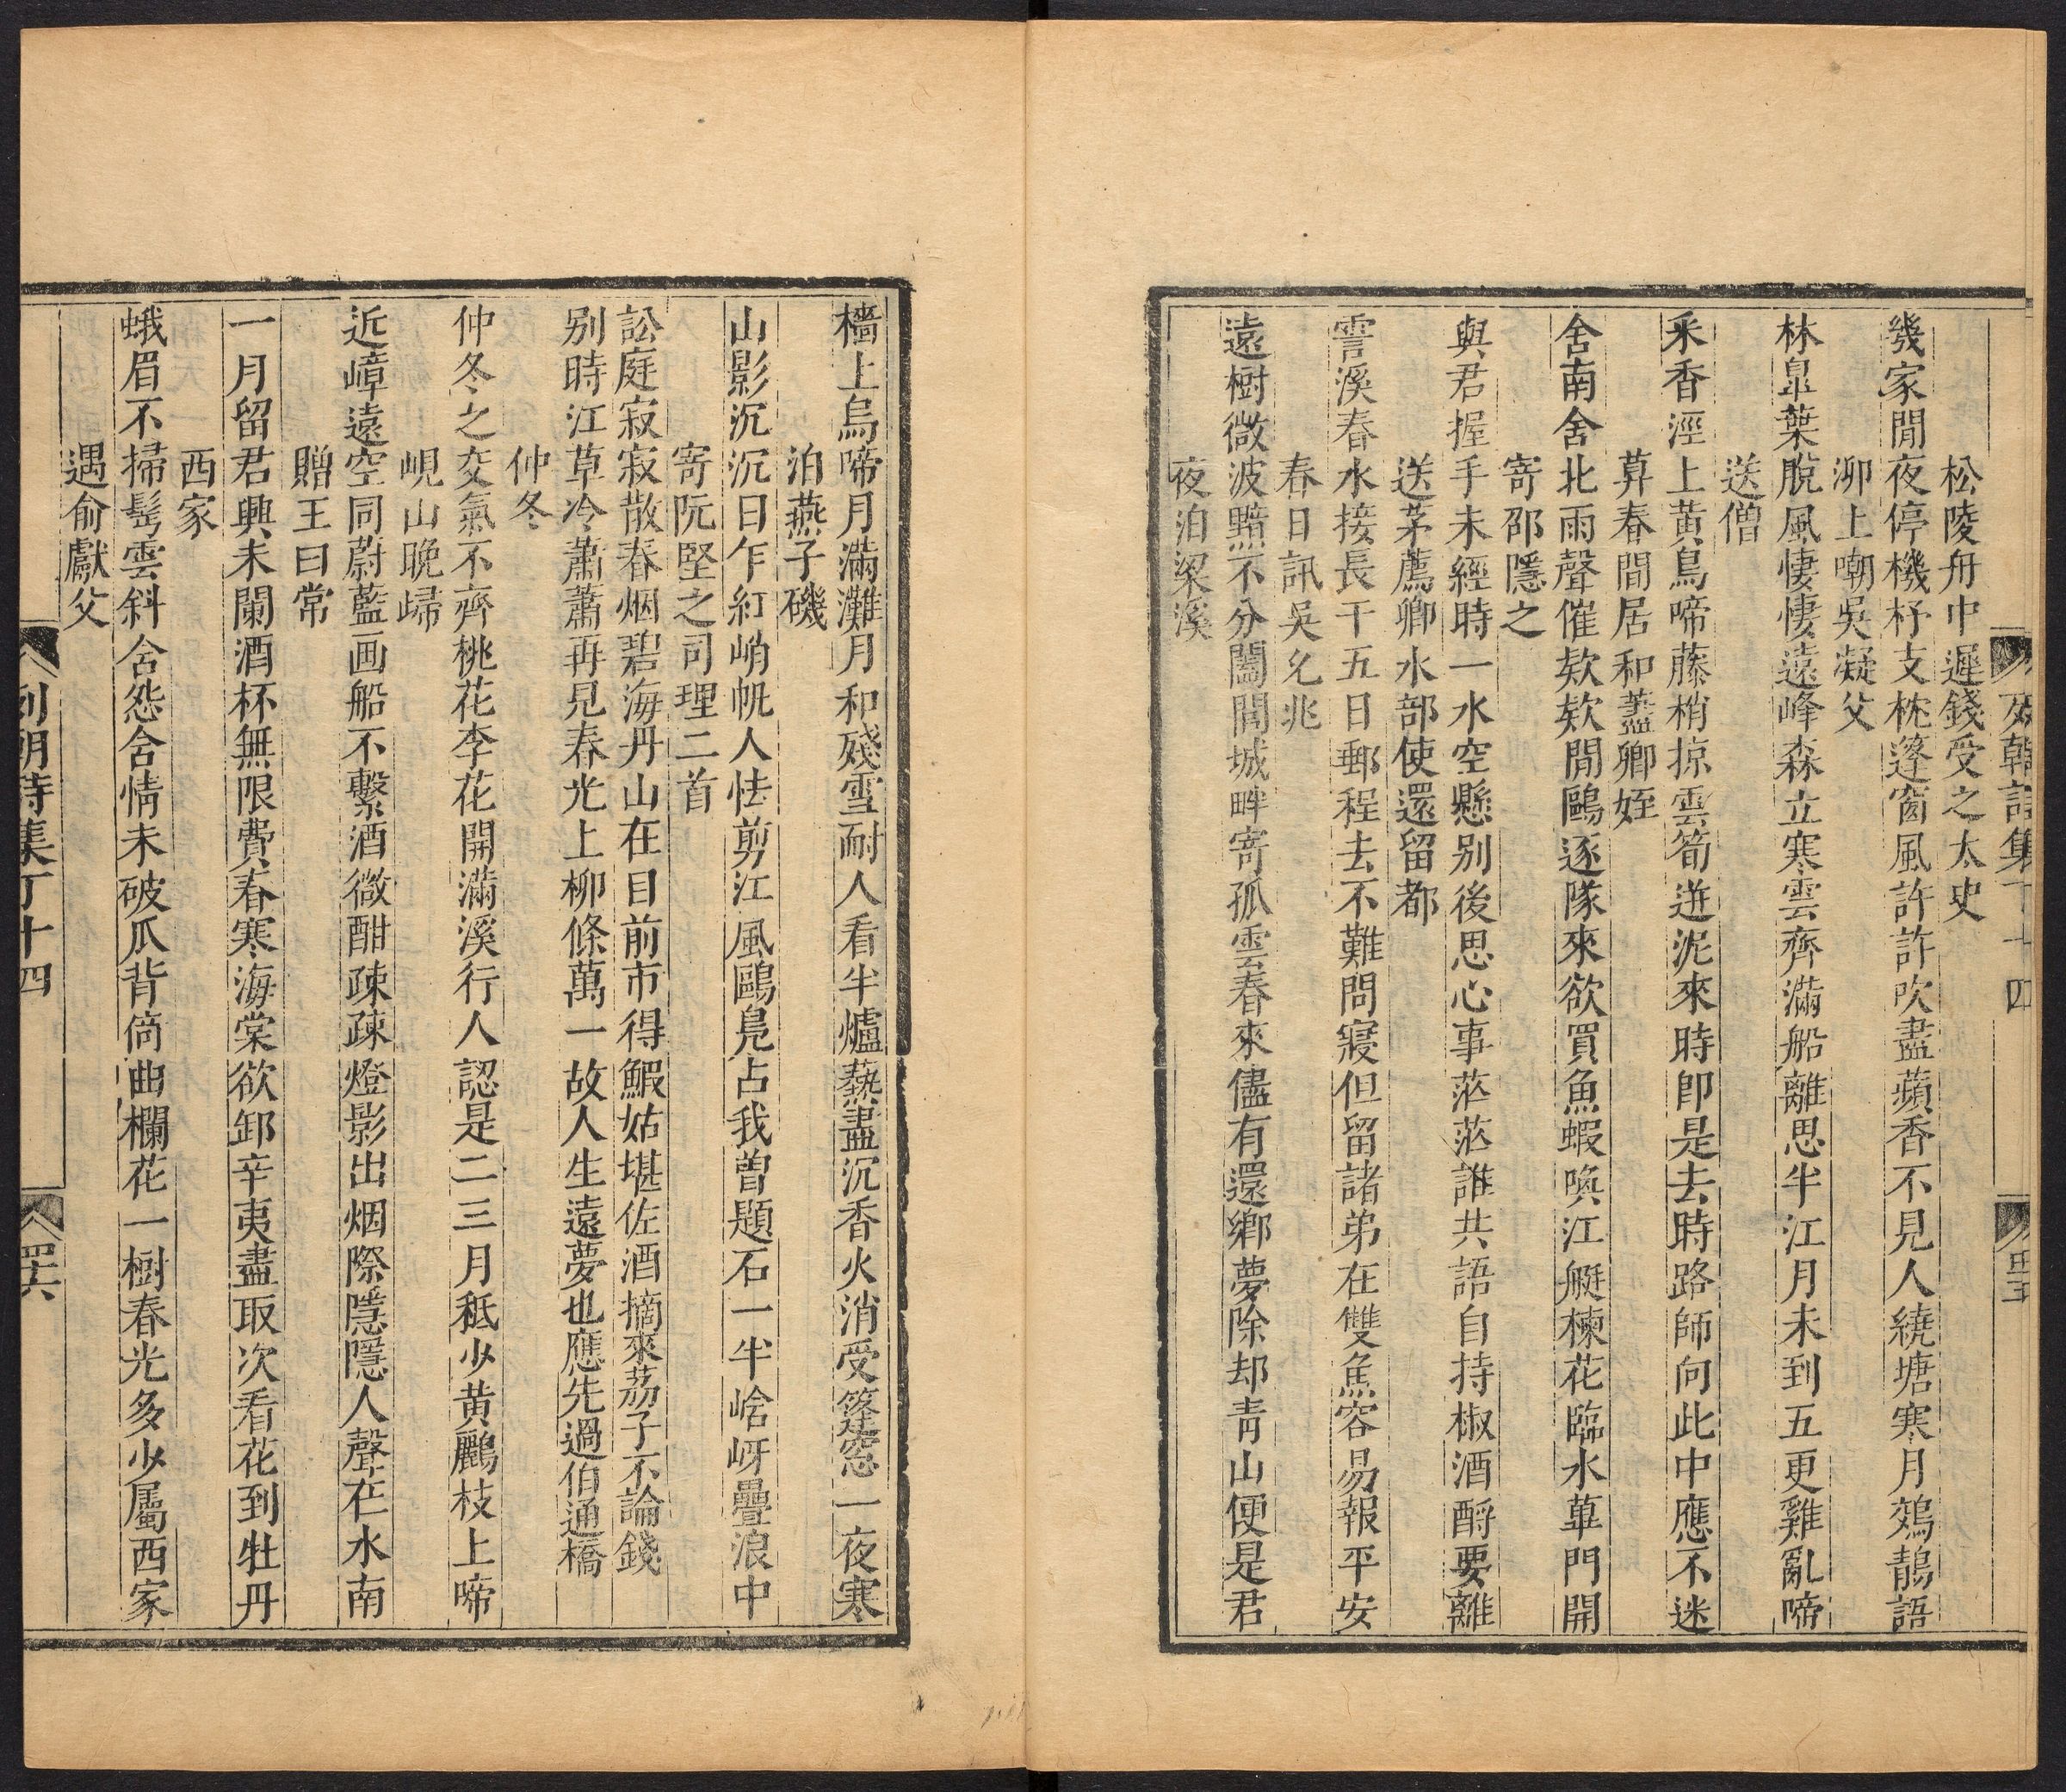 松陵舟中遲錢受之太史
幾家閒夜停機杼支枕篷窗風許許吹盡蘋香不見人繞塘寒月鵁鶄語
泖上嘲吳凝父
林皐葉脫風悽悽遠峰森立寒雲齊滿船離思半江月未到五更雞亂啼
送僧
釆香涇上黃鳥啼藤梢掠雲筍迸泥來時卽是去時路師向此中應不迷
葬春間居和藎卿姪
舍南舍北雨聲催欸欸閒鷗逐隊來欲買魚蝦喚江艇楝花臨水蓽門開
寄邵隱之
與君握手未經時一水空懸别後思心事茫茫誰共語自持椒酒酹要離
送茅薦卿水部使還留都
霅溪春水接長干五日郵程去不難問寢但留諸弟在雙魚容易報平安
春日訊吳㕙兆
遠樹微波黯不分闔閭城畔寄孤雲春來儘有還鄉夢除却靑山便是君
夜泊梁溪
檣上烏啼月滿灘月和殘雪耐人看半爐爇盡沉香火消受篷窓一夜寒
泊燕子磯
山影沉沉日乍紅峭帆人怯剪江風鷗鳧占我曽題石一半峆岈疊浪中
寄阮堅之司理二首
訟庭寂寂散春烟碧海丹山在目前市得鰕姑堪佐酒摘來荔子不論錢
别時江草冷蕭蕭再見春光上柳條萬一故人生遠夢也應先過伯通橋
仲冬
仲冬之交氣不齊桃花李花開滿溪行人認是二三月秪少黄鸝枝上啼
峴山晚歸
近嶂遠空同蔚藍画船不繫酒微酣疎疎燈影出烟際隱隱人聲在水南
贈王曰常
一月留君興未闌酒杯無限費春寒海棠欲卸辛夷盡取次看花到牡丹
西家
蛾眉不掃髩雲斜含怨含情未破瓜背倚曲欄花一樹春光多少屬西家
遇俞獻父
列朝詩集丁十四
四六